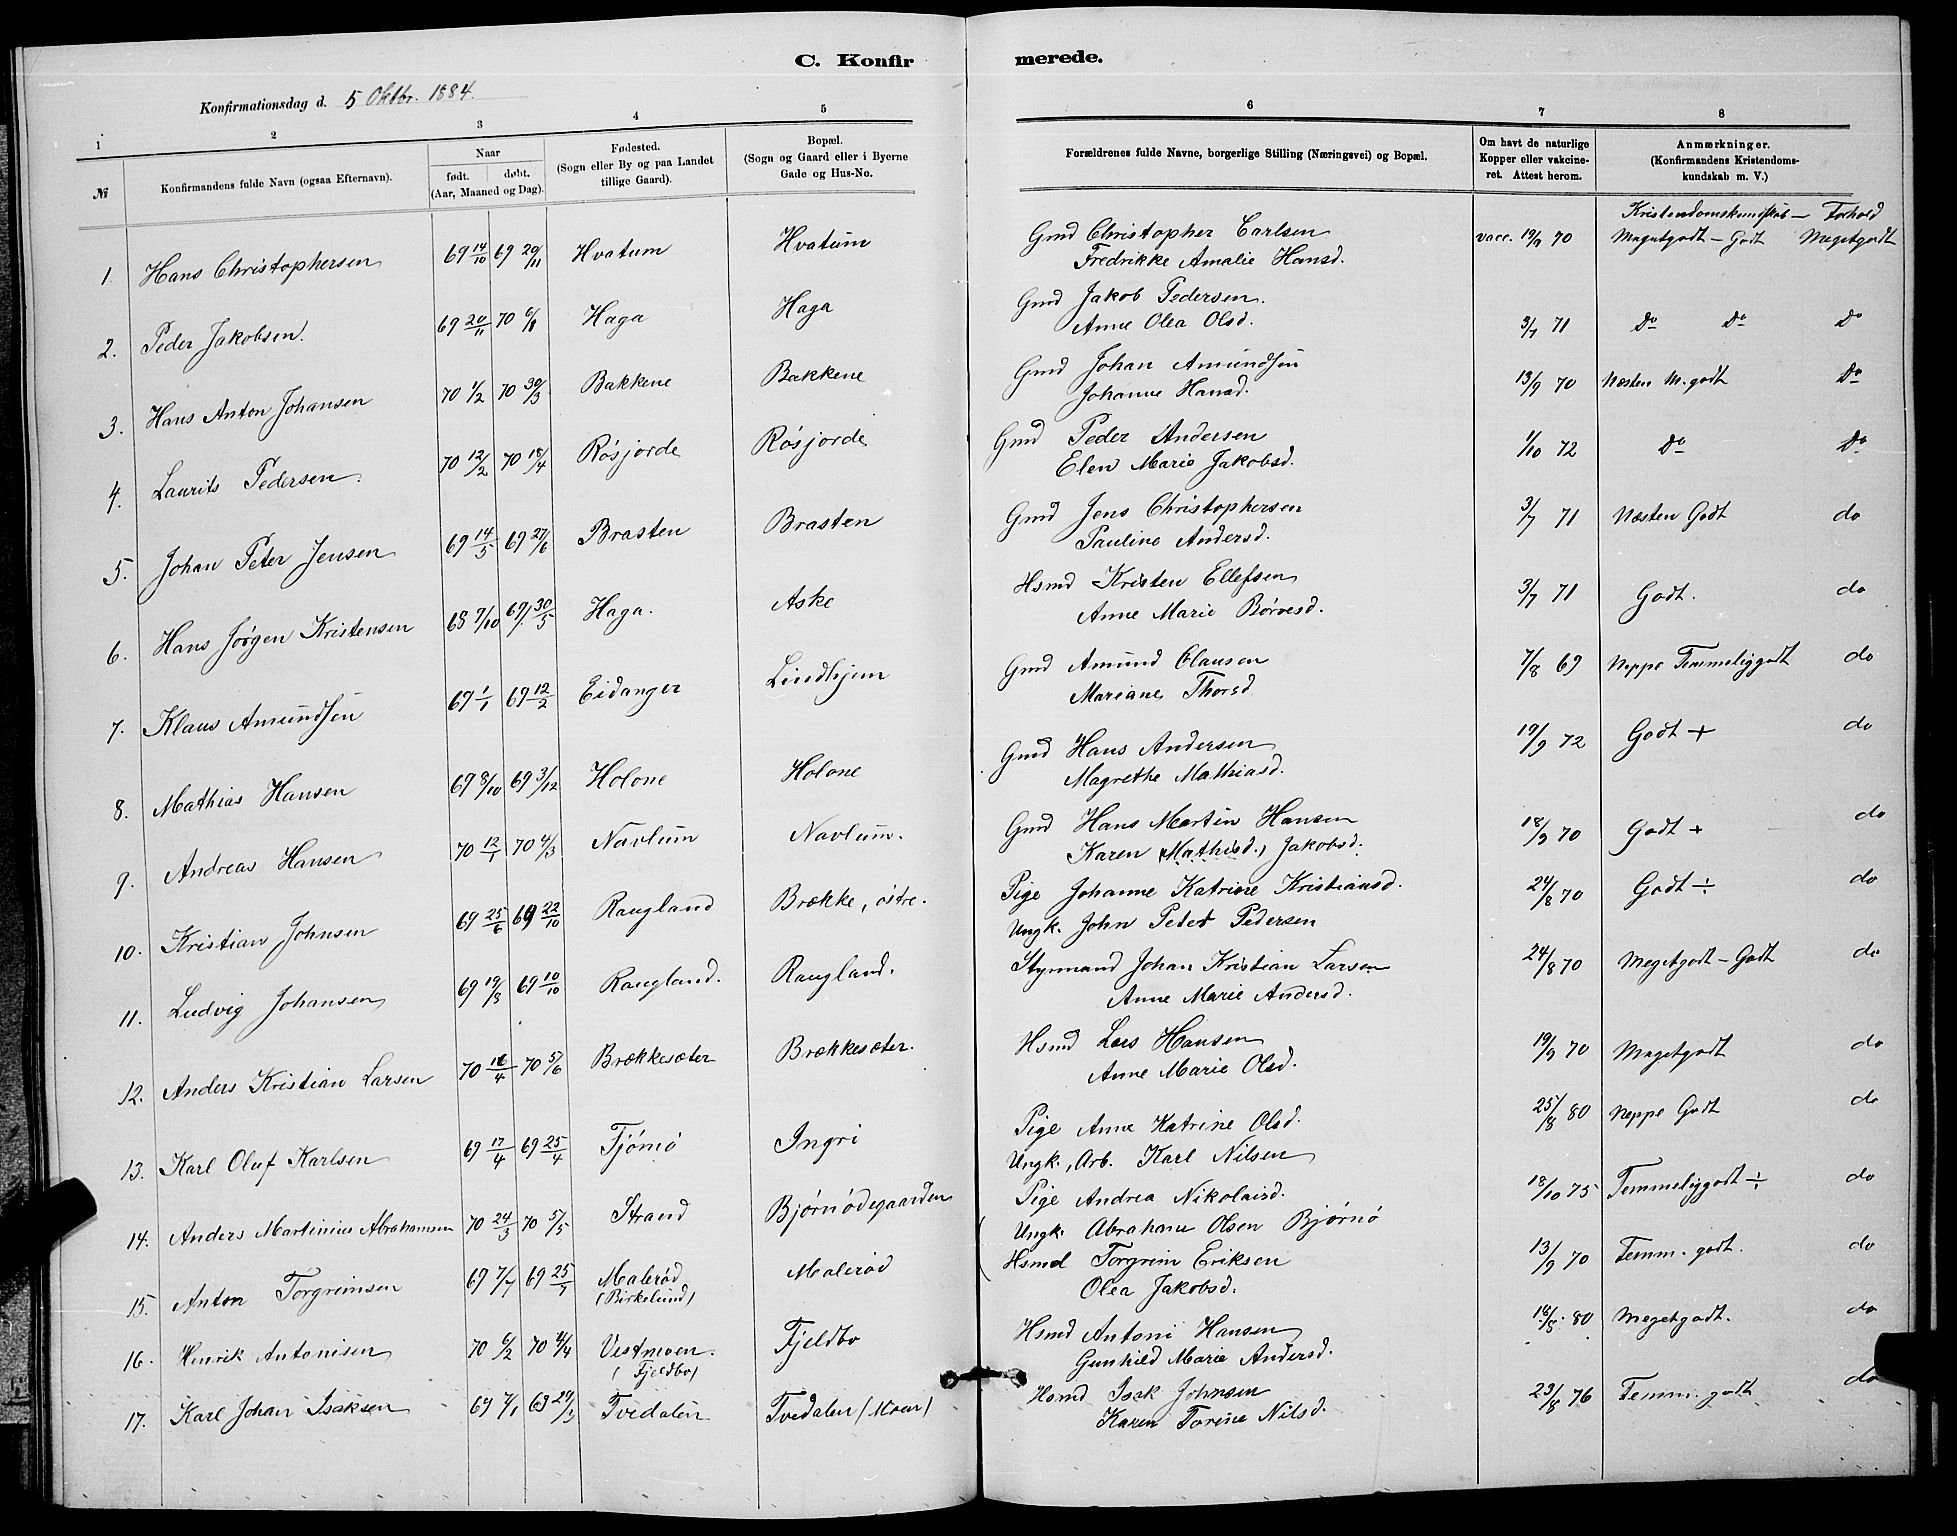 C. Konfirmerede.
Konfirmationsdag d. 5 Oktbr. 1884.
1 2 3 4 5 6 7 8
№ Konfirmandens fulde Navn (ogsaa Efternavn). Naar født. døbt. (Aar, Maaned og Dag). Fødested. (Sogn eller By og paa Landet tillige Gaard). Bopæl. (Sogn og Gaard eller i Byerne Gade og Hus-No. Forældrenes fulde Navne, borgerlige Stilling (Næringsvei) og Bopæl. Om havt de naturlige Kopper eller vakcineret. Attest herom. Anmærkninger. (Konfirmandens Kristendomskundskab m. V.)
Kristendomskundskab — Forhold
1 Hans Christophersen 69 14/10 69 29/11 Hvatum Hvatum Gmd Christopher Carlsen vacc. 19/9 70 Megetgodt — Godt Megetgodt
Fredrikke Amalie Hansd.
2. Peder Jakobsen. 69 20/11 70 6/8 Haga Haga Gmd Jakob Pedersen.
Anne Olea Olsd. 3/7 71 Do Do Do
3. Hans Anton Johansen 70 1/2 70 30/3 Bakkene Bakkene Gmd Johan Amundsen 13/9 70 Næsten M. godt Do
Johanne Hansd.
4. Laurits Pedersen. 70 12/2 70 18/4 Røsjorde Røsjorde Gmd Peder Andersen 1/10 72 Do Do
Elen Marie Jakobsd.
5. Johan Peter Jensen 69 14/5 69 27/6 Brasten Brasten Gmd Jens Christophersen 3/7 71 Næsten Godt do
Pauline Andersd.
6. Hans Jørgen Kristensen 68 7/10 69 30/5 Haga. Aske Hsmd Kristen Ellefsen 3/7 71 Godt. do
Anne Marie Børresd.
7. Klaus Amundsen 69 1/1 69 12/2 Eidanger Lindhjem Gmd Amund Clausen 7/8 69 Neppe Temmeliggodt do
Mariane Thorsd
8. Mathias Hansen 69 8/10 69 3/12 Holone Holone Gmd Hans Andersen 19/9 72 Godt + do
Magrethe Mathiasd.
9. Andreas Hansen 70 12/1 70 4/3 Navlum Navlum. Gmd Hans Martin Hansen 18/9 70 Godt + do
Karen (Mathisd.) Jakobsd.
10. Kristian Johnsen 69 25/6 69 22/10 Raugland Brække, østre. Pige Johanne Katrine Kristiansd. 24/8 70 Godt ÷ do
Ungk. John Peter Pedersen
11. Ludvig Johansen 69 19/8 69 10/10 Raugland. Raugland. Styrmand Johan Kristian Larsen 24/8 70 Megetgodt — Godt do
Anne Marie Andersd.
12. Anders Kristian Larsen 70 16/4 70 5/6 Brækkesæter Brækkesæter. Hsmd Lars Hansen 19/9 70 Megetgodt do
Anne Marie Olsd.
13. Karl Oluf Karlsen 69 17/4 69 25/4 Tjømø Ingri Pige Anne Katrine Olsd. 25/8 80 Neppe Godt do
Ungk., Arb. Karl Nilsen
14. Anders Martinius Abrahamsen 70 24/3 70 5/5 Strand Bjørnødegaarden Pige Andrea Nikolaisd. 18/10 75 Temmeliggodt ÷ do
Ungk. Abraham Olsen Bjørnø
15. Anton Torgrimsen 69 7/7 69 25/7 Malerød Malerød Hsmd Torgrim Eriksen 13/9 70 Temm. godt. do
(Birkelund) Olea Jakobsd.
16. Henrik Antonisen 70 6/2 70 4/4 Vestmoen. Fjeldbo Hsmd Antoni Hansen 18/8 80 Megetgodt. do
(Fjeldbo) Gunhild Marie Andersd.
17. Karl Johan Isaksen 69 7/1 69 29/3 Tvedalen Tvedalen (Moen) Hsmd Isak Johnsen 23/8 76 Temm. godt do
Karen Torine Nilsd.